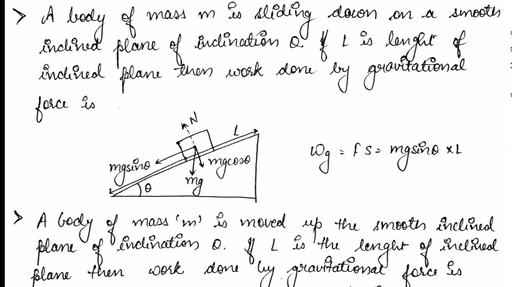 > A body of mass m is sliding down on a smooth
inclined plane of inclination θ. If L is lenght of
inclined plane then work done by gravitational
force is
N
L
mgsinθ
mgcosθ
mg
θ
Wg = FS = mgsinθ × L
> A body of mass 'm' is moved up the smooth inclined
plane of inclination θ. If L is the lenght of inclined
plane then work done by gravitational force is